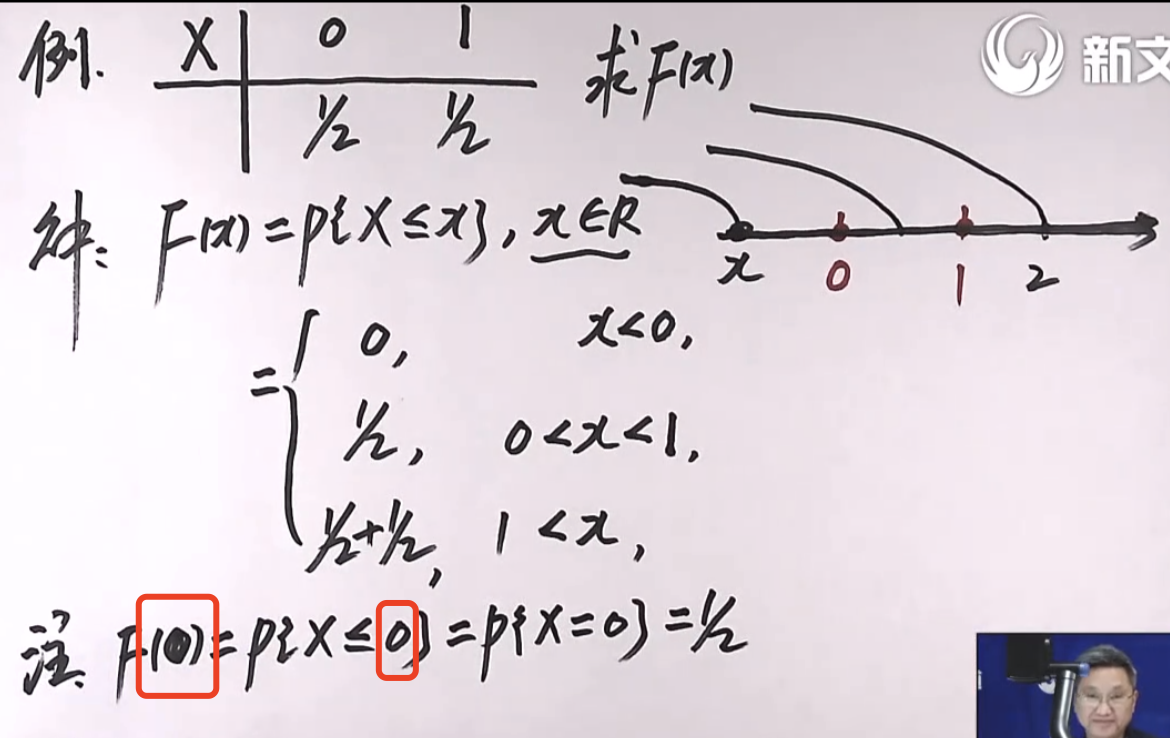 例. X 0 1 求F(x)
1/2 1/2
解: F(x)=P{X≤x}, x∈R
x 0 1 2
= { 0, x<0,
1/2, 0<x<1,
1/2+1/2, 1<x,
注. F(0)=P{X≤0}=P{X=0}=1/2
新文